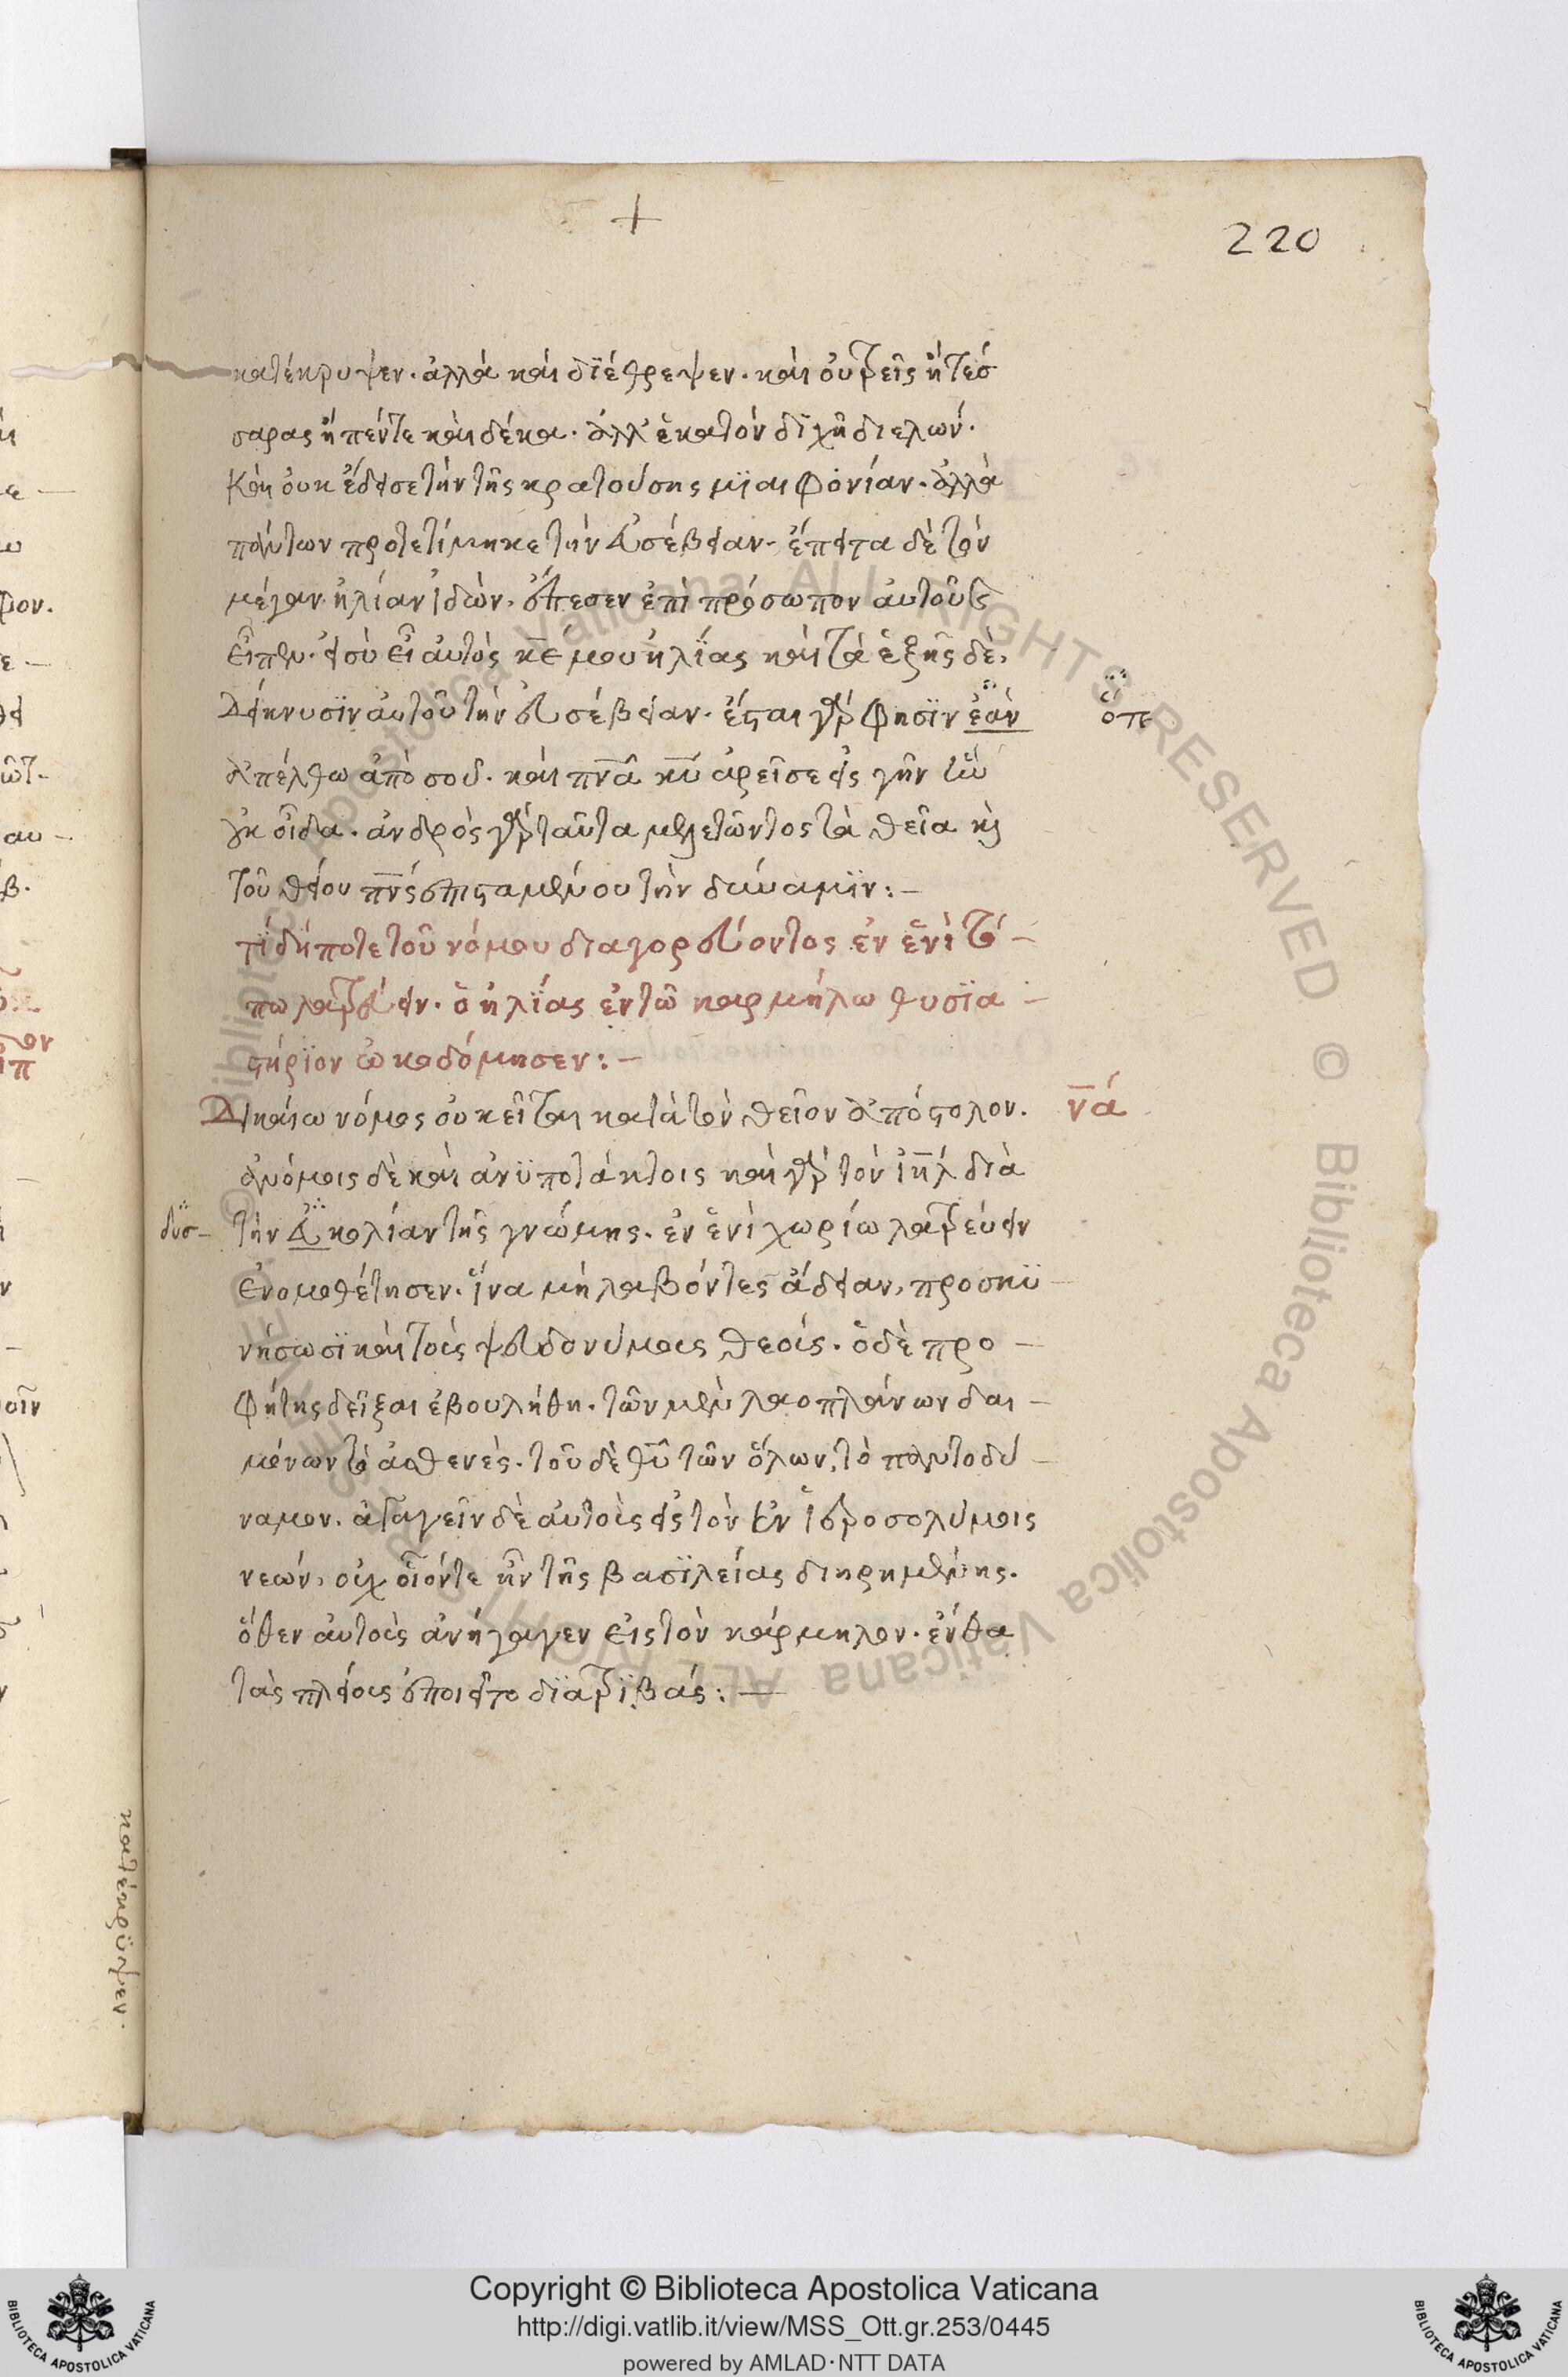 220
κατέκρυψεν. ἀλλὰ καὶ διέθρεψεν. καὶ οὐ τρεῖς ἢ τέσ
σαρας ἢ πέντε καὶ δέκα. ἀλλ' ἑκατὸν διχῆ διελών.
Καὶ οὐκ ἔδεισε τὴν τῆς κρατούσης μϊαιφονίαν. ἀλλὰ
πάντων προτετίμηκε τὴν εὐσέβειαν. ἔπειτα δὲ τὸν
μέγαν ἠλίαν ἰδὼν. ἔπεσεν ἐπὶ πρόσωπον αὐτοῦ καὶ
εἶπεν. εἰ σὺ εἶ αὐτὸς κ̅ε̅ μου ἠλίας καὶ τὰ ἑξῆς δὲ,
δείκνυσϊν αὐτοῦ τὴν εὐσέβειαν. ἔσται γὰρ φησϊν ἐὰν
ὅτε
ἀπέλθω ἀπὸ σοῦ. καὶ π̅ν̅α̅ κ̅υ̅ ἀρεῖ σε εἰς γῆν ἣν
οὐκ οἶδα. ἀνδρὸς γὰρ ταῦτα μελετῶντος τὰ θεῖα καὶ
τοῦ θείου π̅ν̅ς̅ ἐπισταμένου τὴν δύναμϊν:-
τί δήποτε τοῦ νόμου διαγορεύοντος ἐν ἑνὶ τό-
πω λατρεύειν. ὁ ἠλΐας ἐν τῶ καρμήλω θυσϊα-
στήρϊον ὠκοδόμησεν:-
Δικαίω νόμος οὐ κεῖται κατὰ τὸν θεῖον ἀπόστολον.
ν̅α̅
ἀνόμοις δὲ καὶ ἀνϋποτάκτοις καὶ γὰρ τὸν ἰ̅η̅λ̅ διὰ
δυσ-
τὴν εὐκολίαν τῆς γνώμης. ἐν ἑνὶ χωρίω λατρεύειν
ἐνομοθέτησεν. ἵνα μὴ λαβόντες ἄδειαν, προσκϋ-
νήσωσϊ καὶ τοῖς ψευδονύμοις θεοῖς. ὁ δὲ προ-
φήτης δεῖξαι ἐβουλήθη. τῶν μὲν λαοπλάνων δαι-
μόνων τὸ ἀσθενὲς. τοῦ δὲ θ̅υ̅ τῶν ὅλων, τὸ παντοδύ-
ναμον. ἀπαγεῖν δὲ αὐτοὺς εἰς τὸν ἐν ἱεροσολύμοις
νεών, οὐχ οἷόντε ἦν τῆς βασϊλείας διηρημένης.
ὅθεν αὐτοὺς ἀνήγαγεν εἰς τὸν κάρμηλον. ἔνθα
τὰς πλείους ἐποιεῖτο δϊατρϊβάς:-
κατέκρϋψεν.
Copyright © Biblioteca Apostolica Vaticana
http://digi.vatlib.it/view/MSS_Ott.gr.253/0445
powered by AMLAD·NTT DATA
BIBLIOTECA APOSTOLICA VATICANA
BIBLIOTECA APOSTOLICA VATICANA
© Biblioteca Apostolica Vaticana ALL RIGHTS RESERVED
© Biblioteca Apostolica Vaticana ALL RIGHTS RESERVED